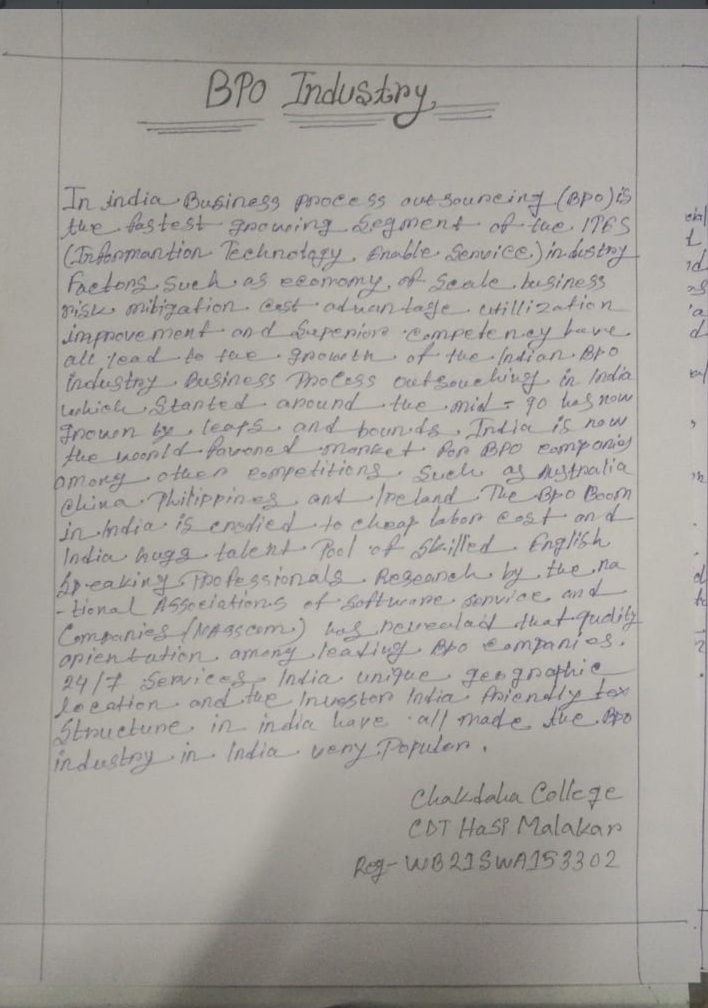 BPO Industry,
In india Business process outsourcing (BPO) is
the fastest growing segment of the ITES
(Informantion Technology Enable Service.) industry
Factors such as economy of Scale business
risk mitigation cost advantage utillization
improvement and Superior competency have
all lead to the growth of the Indian BPO
industry Business Process outsouching in India
which Started around the mid-90 has now
grown by leaps and bounds. India is now
the world favored market for BPO companies
among other competitions such as Australia
china Philippines and Ireland The BPO Boom
in India is credied to cheap labor cost and
India hugs talent Pool of Skilled English
speaking Professionals Research by the na
-tional Associations of software service and
Companies (NASSCOM) has revealed that quality
orientation among leading BPO companies.
24/7 Services India unique geographic
location and the Investor India friendly tax
Structure in india have all made the BPO
industry in India very Popular.
Chakdaha College
CDT Hasi Malakar
Reg- WB21SWA153302